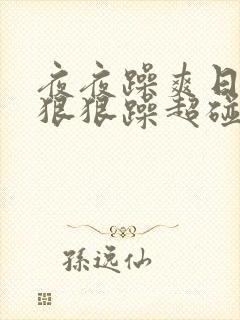 夜夜躁爽日
狠狠躁超碰
孫远仙